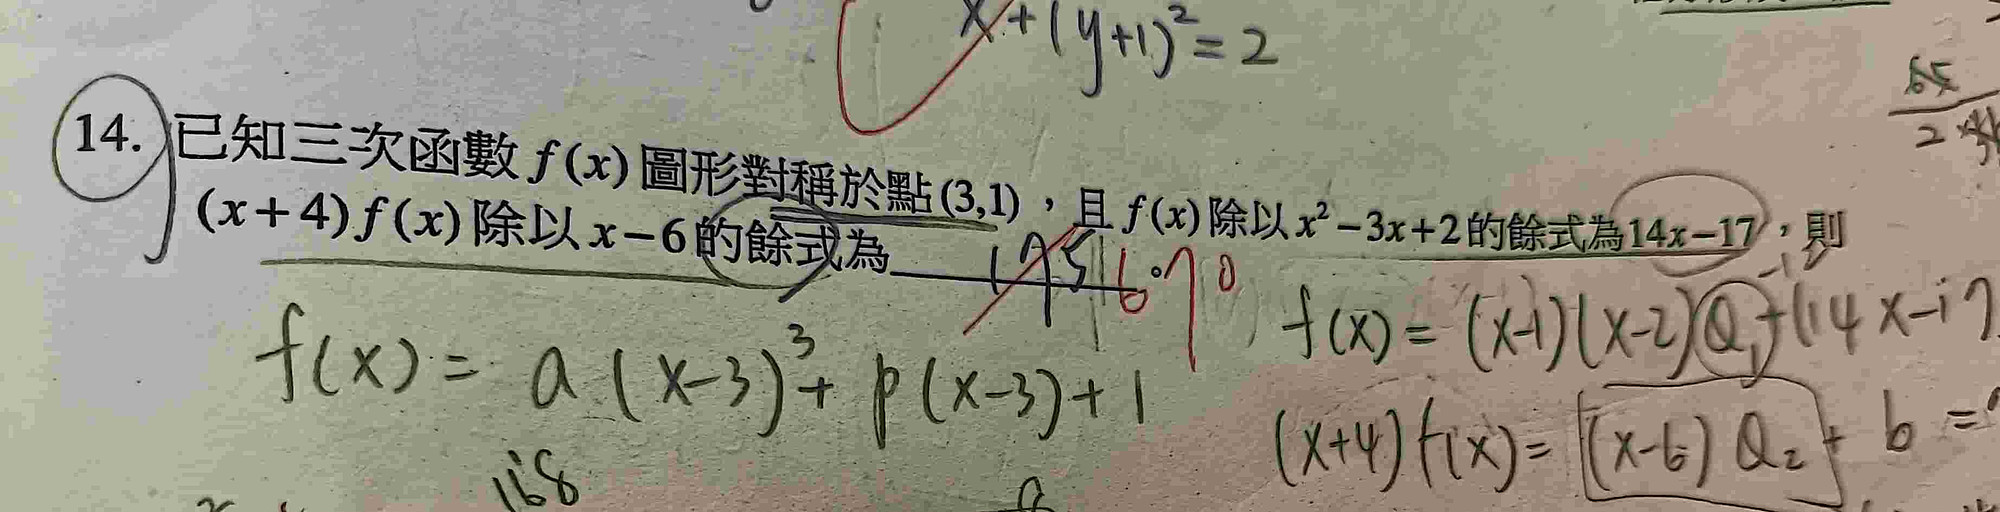 x+(y+1)²=2
14. 已知三次函數 f(x) 圖形對稱於點(3,1)，且 f(x) 除以 x²−3x+2 的餘式為 14x−17，則
(x+4)f(x) 除以 x−6 的餘式為
175 1670
f(x) = a(x-3)³+p(x-3)+1
f(x) = (x-1)(x-2)Q₁+(14x-17
(x+4)f(x) = (x-6)Q₂ + b =
168